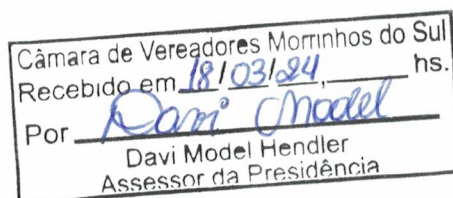 Câmara de Vereadores Morrinhos do Sul
Recebido em 18/03/24, ______ hs.
Por Davi Model
Davi Model Hendler
Assessor da Presidência